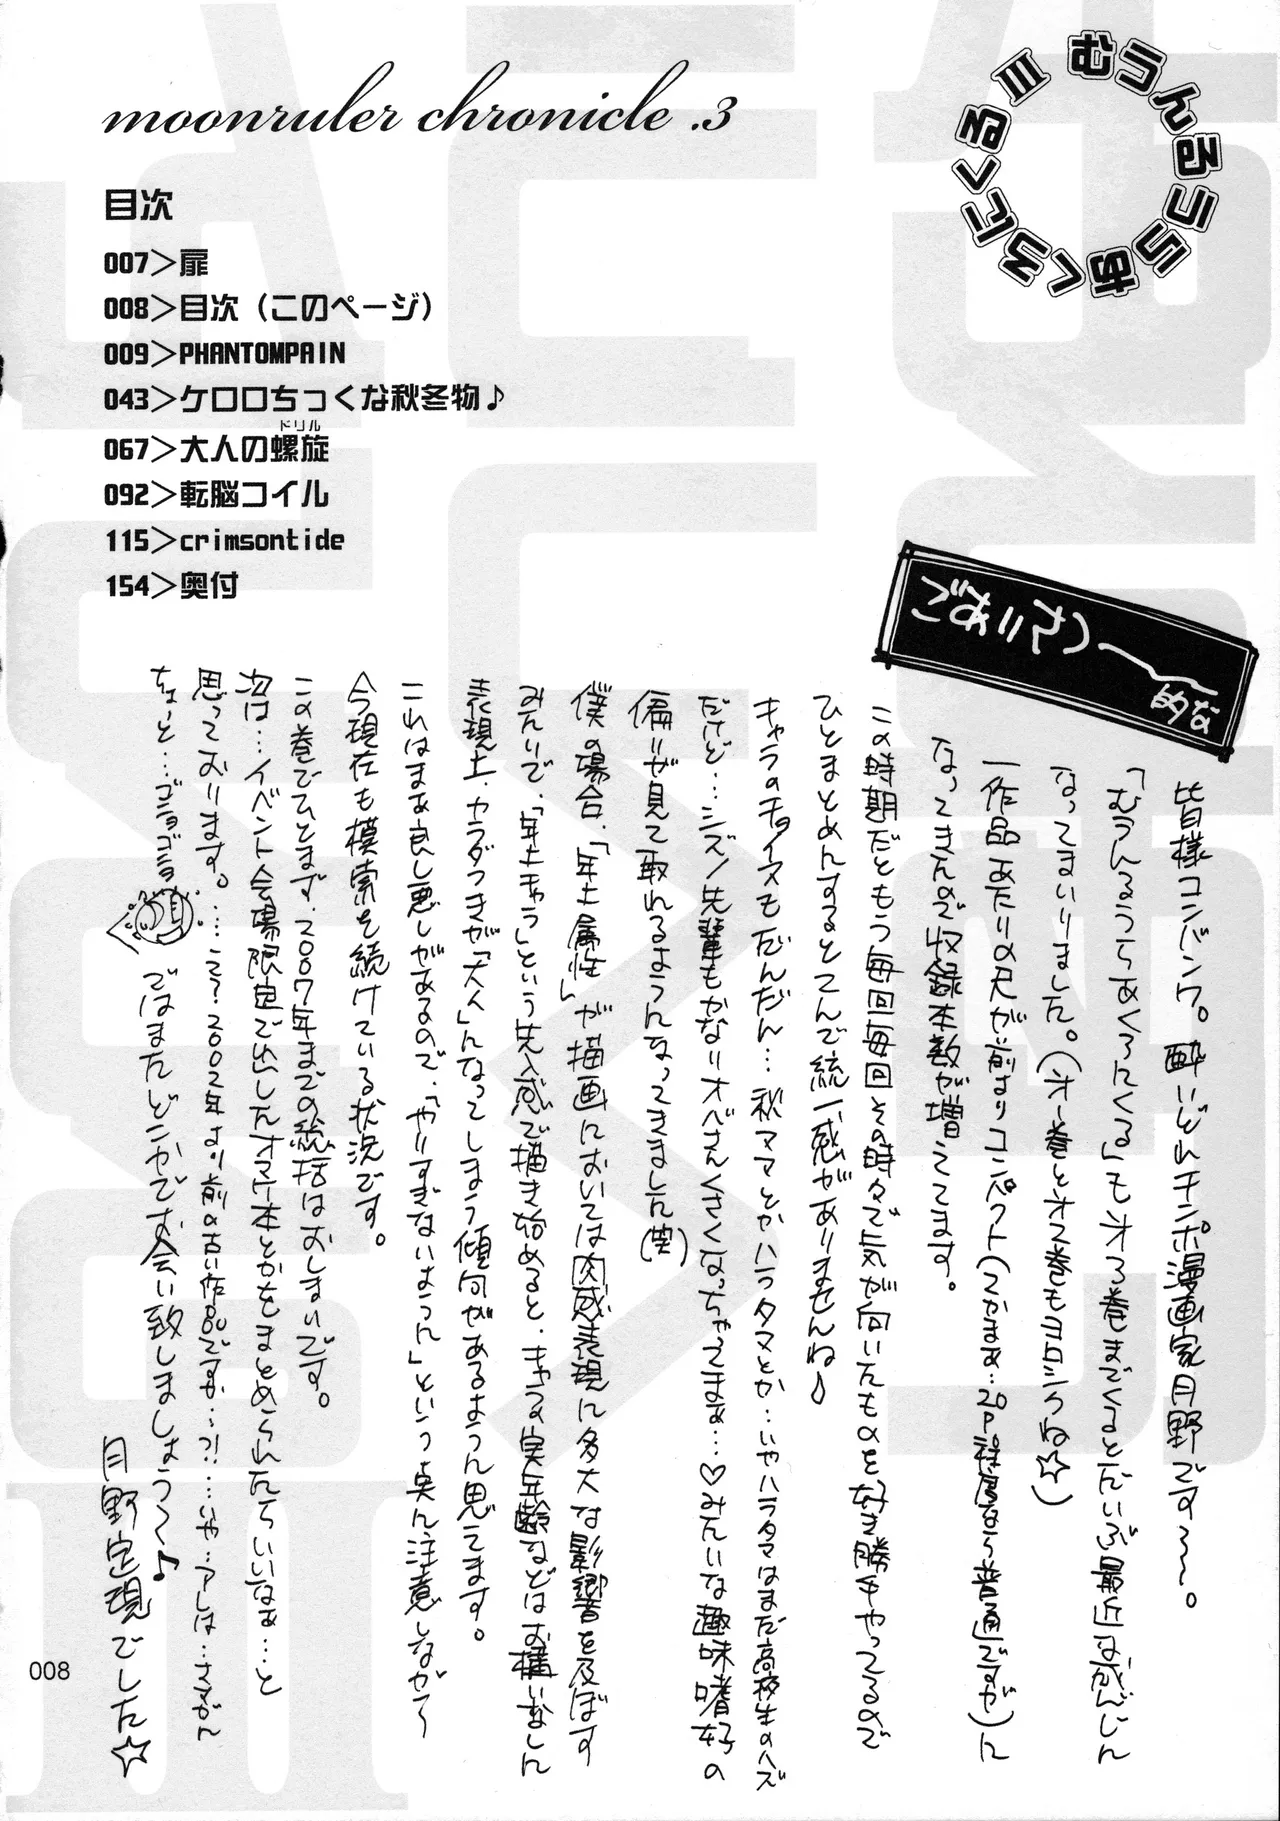 moonruler chronicle .3
むうんるうらあくろにくるIII
目次
007＞扉
008＞目次（このページ）
009＞PHANTOMPAIN
043＞ケロロちっくな秋冬物♪
067＞大人の螺旋
ドリル
092＞転脳コイル
115＞crimsontide
154＞奥付
ごあいさつ〜的な
皆様コンバンワ。酔いどれチンポ漫画家月野です〜〜。
「むうんるうらあくろにくる」もオ3巻までくるとだいぶ最近なかんじに
なってまいりました。(オ1巻とオ2巻もヨロシクね☆)
一作品あたりの尺が前よりコンパクト(てかまぁ…20P程度なら普通ですが)に
なってきたので収録本数が増えてます。
この時期だともう毎回毎回その時々で気が向いたものを好き勝手やってるので
ひとまとめにするとてんで統一感がありませんね♪
キャラのチョイスもだんだん…秋ママとかハラタマとか…いやハラタマはまだ高校生のハズ
だけど…シズノ先輩もかなりオバさんくさくなっちゃてまぁ…♡みたいな趣味嗜好の
偏りが見て取れるようになってきました(笑)
僕の場合、「年上属性」が描画においては肉感表現に多大な影響を及ぼす
みたいで、「年上キャラ」という先入感で描き始めると、キャラの実年齢などはお構いなしに
表現上、カラダつきが「大人」になってしまう傾向があるように思てます。
これはまぁ良し悪しがあるので、「やりすぎないように」という点に注意しながら
今現在も模索を続けている状況です。
この巻でひとまず、2007年までの総括はおしまいです。
次は…イベント会場限定で出したオマケ本とかをまとめられたらいいなぁ…と
思っております。……え？2002年より前の古い作品ですか…?!…いや…アレは…さすがに
ちょっと…ゴニョゴニョ
ではまたどこかでお会い致しましょう〜♪
月野定規でした☆
008